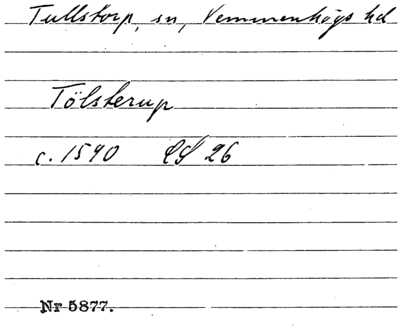 Tullstorp, sn, Vemmenhögs hd
Tölsterup
c. 1590 LS 26
Nr 5877.